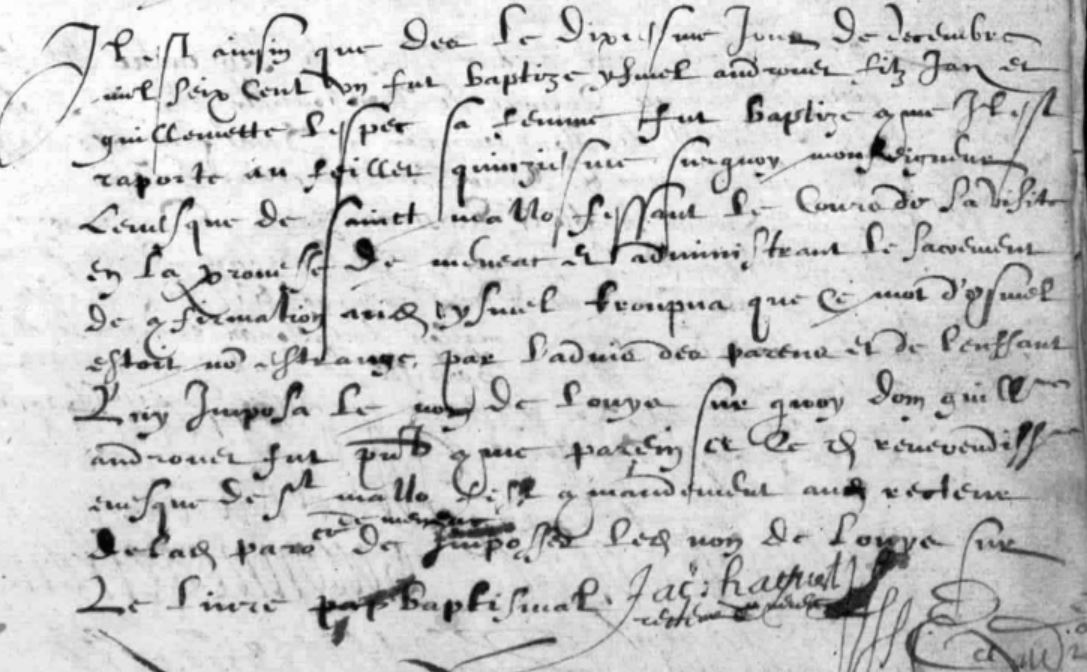 Il est ainsin que des le dixiesme Jour de decembre
mil seix cent un fut baptize ysmel androuet filz Jan et
guillemette lespec sa femme fut baptize 9me Il est
raporte au feillet quinziesme surquoy monseigneur
levesque de sainct mallo fessant le cours de sa visite
en la prouesse de meneac et administrant le sacrement
de 9firmation aud ysmel trouva que ce mot d'ysmel
estoit no estrange par l'advis des parens et de l'enffant
Luy Imposa le nom de Louys sur quoy dom guill
androuet fut pnt 9me parein et le d reverendiss
evesque de st mallo fist 9mandement aud recteur
de lad paro de meneac de Imposer led nom de Louys sur
Le livre pap baptismal. Jac:
recteur de meneac